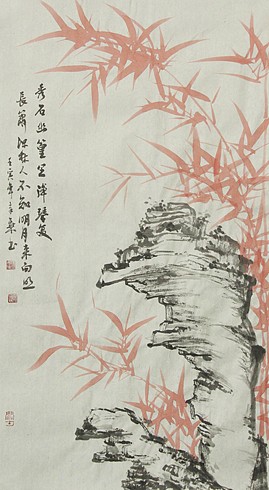 秀石幽篁里弹琴复
長嘯深林人不知明月来相照
壬寅年